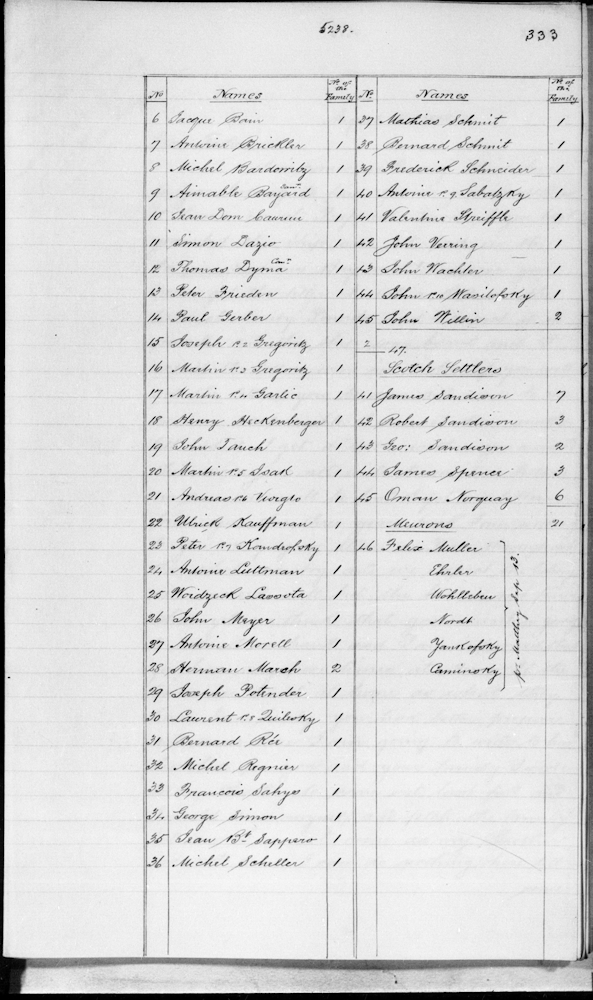 5238.
333
No Names No. of the Family
6 Jacque Bain 1
7 Antoine Brickler 1
8 Michel Bardowitz 1
9 Aimable Bayard 1
10 Jean Dom Caureue 1
11 Simon Dazio 1
12 Thomas Dyma 1
13 Peter Frieden 1
14 Paul Gerber 1
15 Joseph No. 2 Gregoritz 1
16 Martin No. 3 Gregoritz 1
17 Martin No. 4 Garlic 1
18 Henry Heckenberger 1
19 John Jauch 1
20 Martin No. 5 Isak 1
21 Andreas No. 6 Viorglo 1
22 Ulrick Kauffman 1
23 Peter No. 7 Kondrofsky 1
24 Antoine Luttman 1
25 Woidzeck Lassota 1
26 John Meyer 1
27 Antoine Morell 1
28 Herman March 2
29 Joseph Polinder 1
30 Laurent No. 8 Quilesky 1
31 Bernard Réi 1
32 Michel Regnier 1
33 Francois Sahys 1
34 George Simon 1
35 Jean Bt. Sappero 1
36 Michel Scheller 1
No. Names No. of the Family
37 Mathias Schmit 1
38 Bernard Schmit 1
39 Frederick Schneider 1
40 Antoine No. 9 Sabatzky 1
41 Valentine Streiffle 1
42 John Verring 1
43 John Wachter 1
44 John No. 10 Wasilofsky 1
45 John Willin 2
2 47.
Scotch Settlers
41 James Sandison 7
42 Robert Sandison 3
43 Geo: Sandison 2
44 James Spence 3
45 Oman Norquay 6
Meurons 21
46 Felix Muller
Ehrler
Wohlleben
Nordt
Yankofsky
Caminsky
pr Matthey Sep. 13.